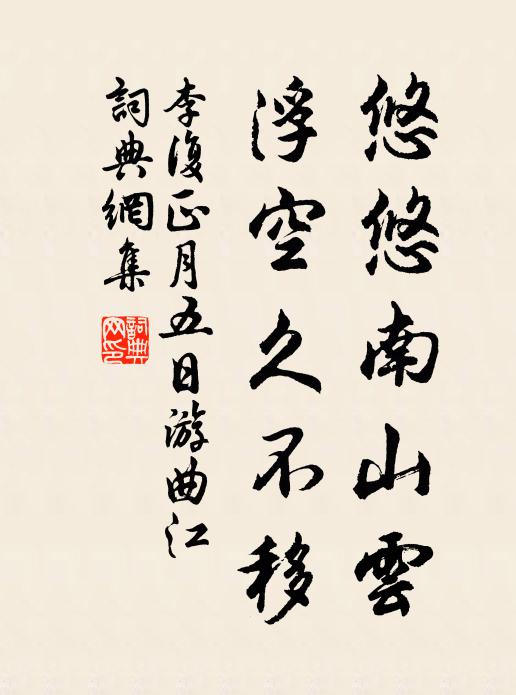 悠悠南山雲
浮空久不移
李復正月五日游曲江
詞典網集
詞典网印